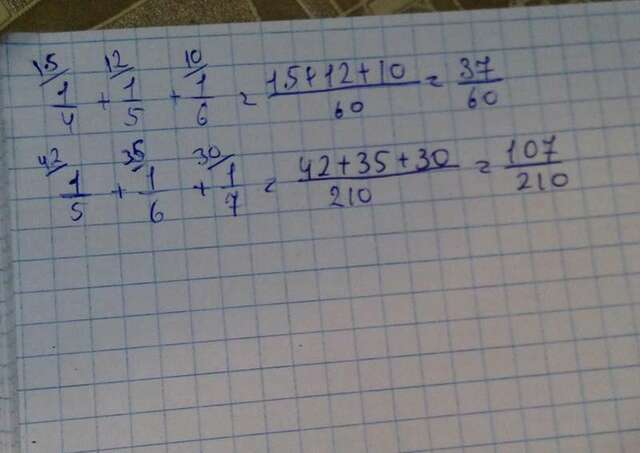 15/ 12/ 10/
1/4 + 1/5 + 1/6 = 15+12+10/60 = 37/60
42/ 35/ 30/
1/5 + 1/6 + 1/7 = 42+35+30/210 = 107/210